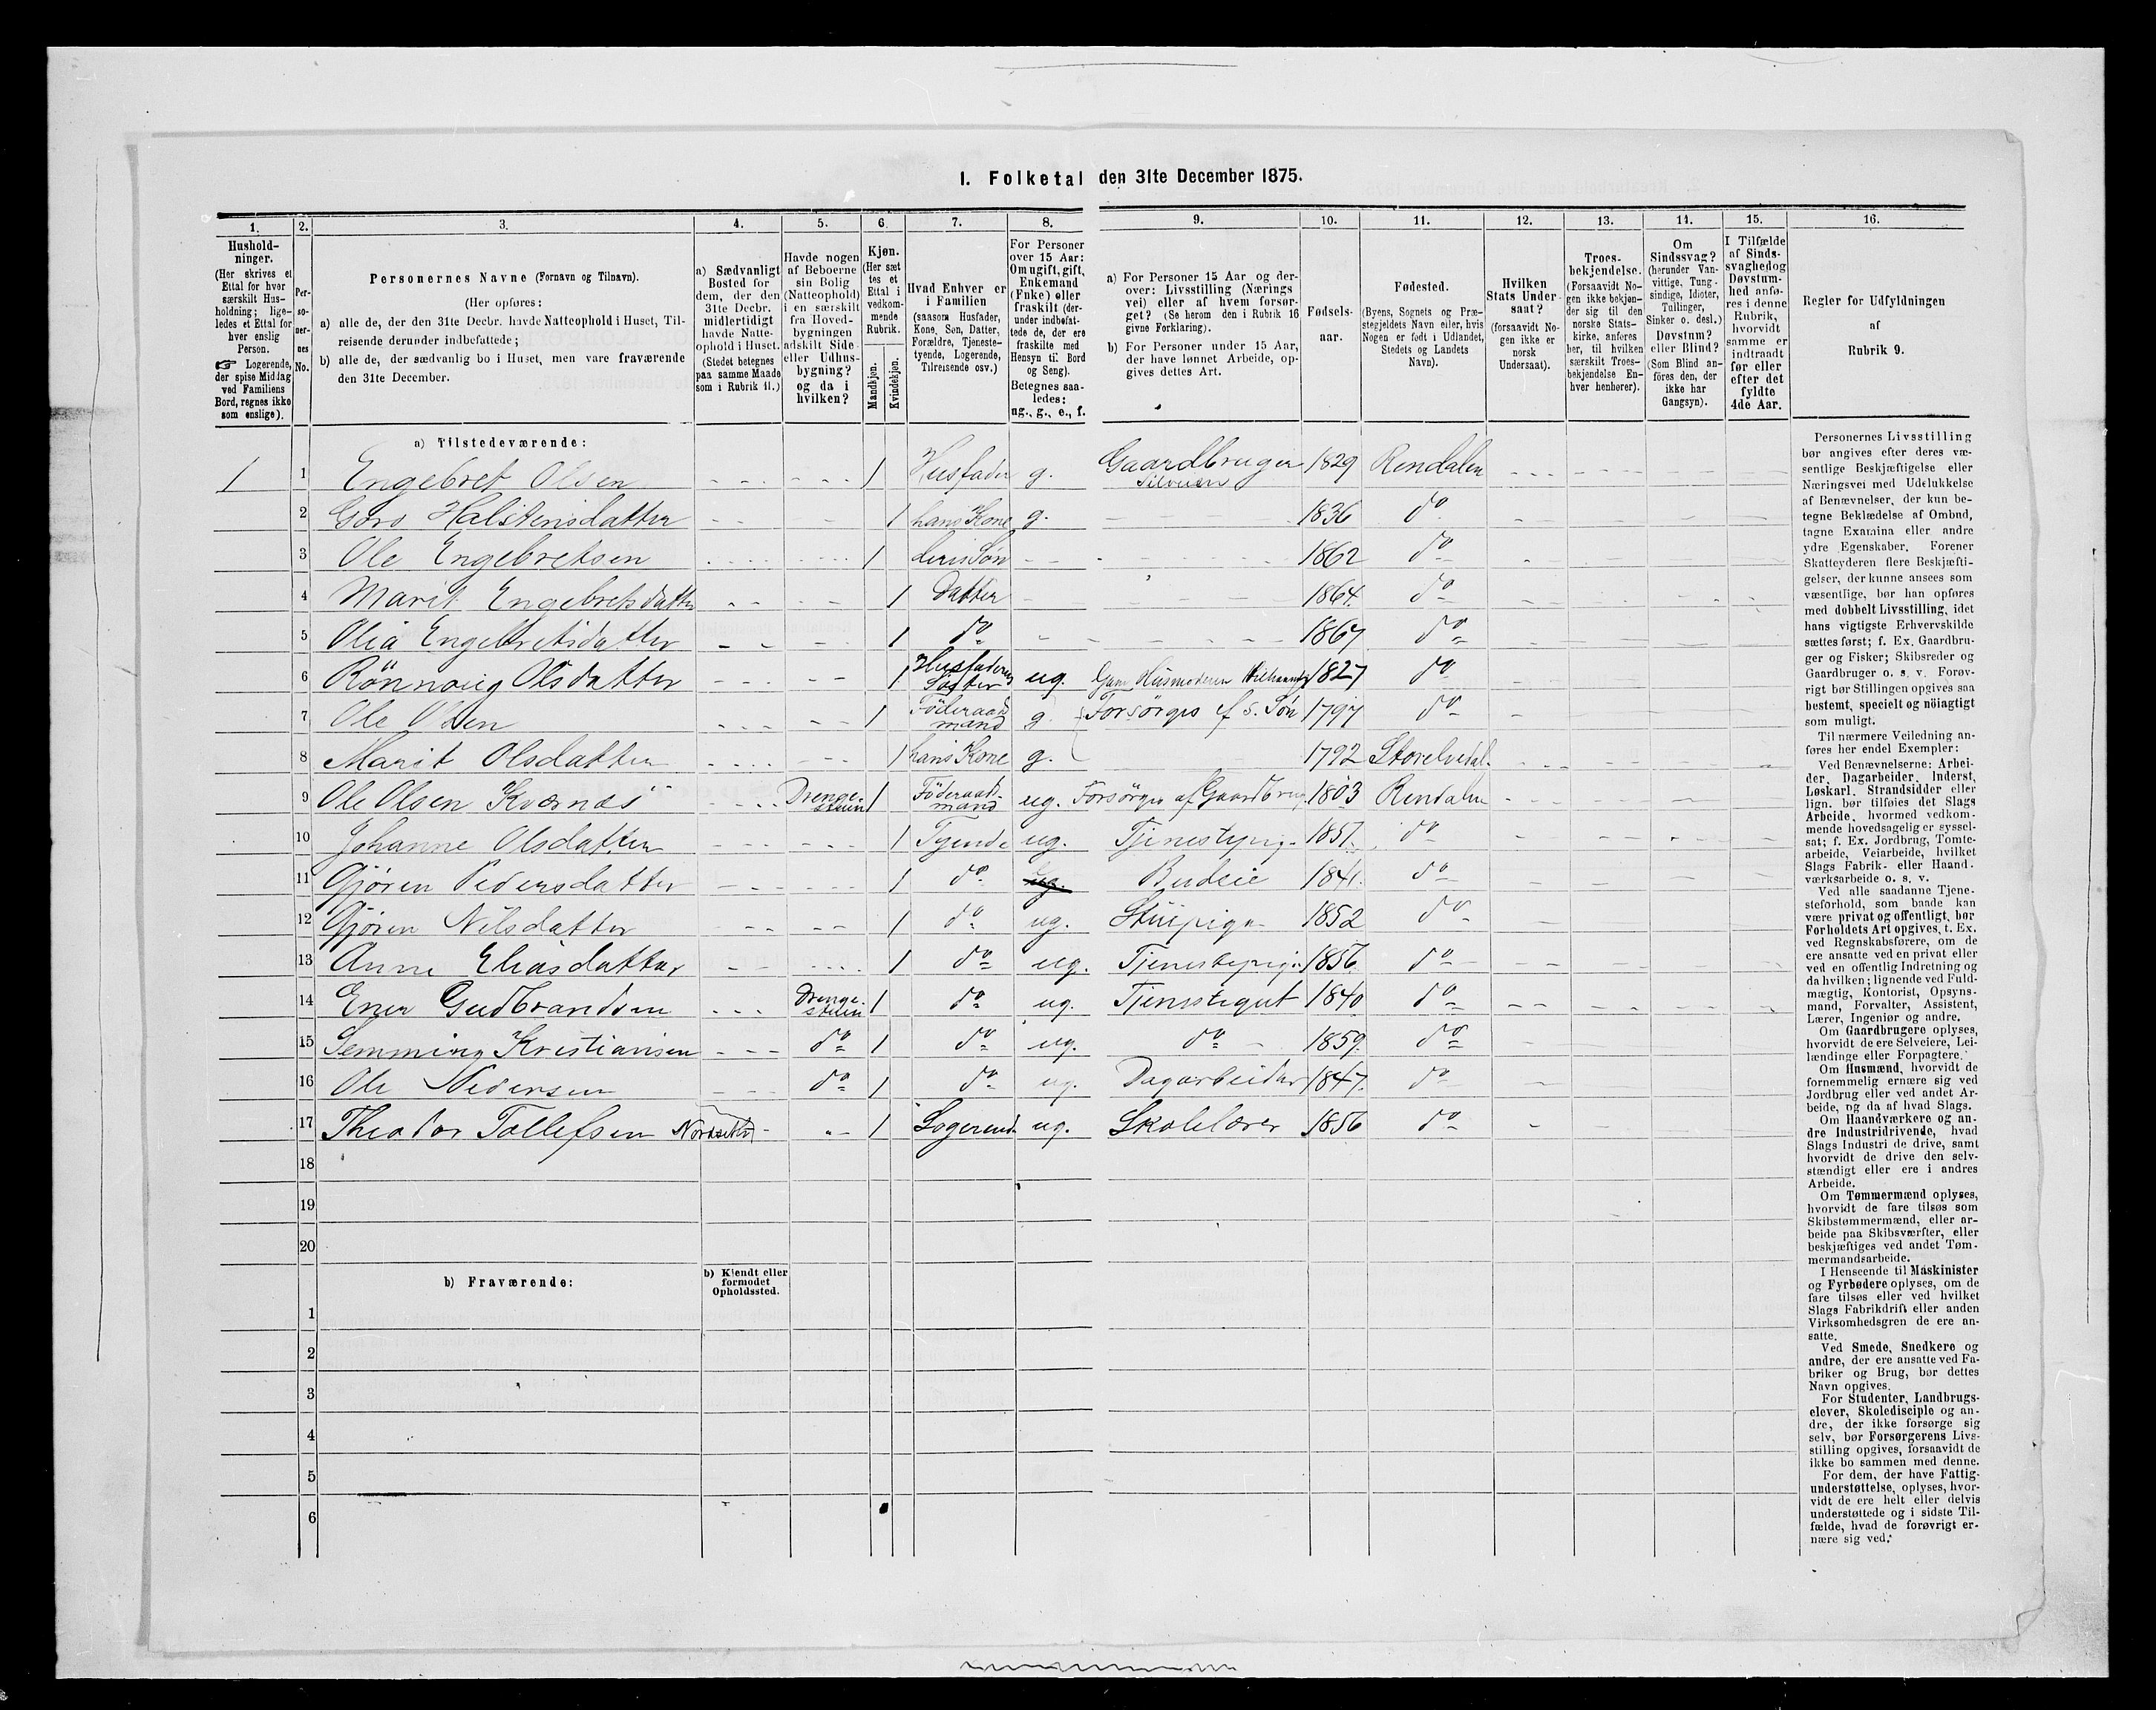 I. Folketal den 31te December 1875.
1. 2. 3. 4. 5. 6. 7. 8. 9. 10. 11. 12. 13. 14. 15. 16.
Hushold-
ninger.
(Her skrives et
Ettal for hver
særskilt Hus-
holdning; lige-
ledes et Ettal for
hver enslig
Person.
☞ Logerende,
der spise Middag
ved Familiens
Bord, regnes ikke
som enslige).
Per-
so-
ner-
nes
No.
Personernes Navne (Fornavn og Tilnavn).
(Her opføres:
a) alle de, der den 31te Decbr. havde Natteophold i Huset, Til-
reisende derunder indbefattede;
b) alle de, der sædvanlig bo i Huset, men vare fraværende
den 31te December.
a) Sædvanligt
Bosted for
dem, der den
31te Decbr.
midlertidigt
havde Natte-
ophold i Huset.
(Stedet betegnes
paa samme Maade
som i Rubrik 11.)
Havde nogen
af Beboerne
sin Bolig
(Natteophold)
i en særskilt
fra Hoved-
bygningen
adskilt Side-
eller Udhus-
bygning?
og da i
hvilken?
Kjøn.
(Her sæt-
tes et
Ettal i
vedkom-
mende
Rubrik.
Mandkjøn.
Kvindekjøn.
Hvad Enhver er
i Familien
(saasom Husfader,
Kone, Søn, Datter,
Forældre, Tjeneste-
tyende, Logerende,
Tilreisende osv.)
For Personer
over 15 Aar:
Om ugift, gift,
Enkemand
(Enke) eller
fraskilt (der-
under indbefat-
tede de, der ere
fraskilte med
Hensyn til Bord
og Seng).
Betegnes saa-
ledes:
ug., g., e., f.
a) For Personer 15 Aar og der-
over: Livsstilling (Nærings-
vei) eller af hvem forsør-
get? (Se herom den i Rubrik 16
givne Forklaring).
b) For Personer under 15 Aar,
der have lønnet Arbeide, op-
gives dettes Art.
Fødsels-
aar.
Fødested.
(Byens, Sognets og Præ-
stegjeldets Navn eller, hvis
Nogen er født i Udlandet,
Stedets og Landets
Navn).
Hvilken
Stats Under-
saat?
(forsaavidt No-
gen ikke er
norsk
Undersaat).
Troes-
bekjendelse.
(Forsaavidt No-
gen ikke bekjen-
der sig til den
norske Stats-
kirke, anføres
her, til hvilken
særskilt Troes-
bekjendelse En-
hver henhører).
Om
Sindssvag?
(herunder Van-
vittige, Tung-
sindige, Idioter,
Tullinger,
Sinker o. desl.)
Døvstum?
eller Blind?
(Som Blind an-
føres den, der
ikke har
Gangsyn).
I Tilfælde
af Sinds-
svaghed og
Døvstum-
hed anfø-
res i denne
Rubrik,
hvorvidt
samme er
indtraadt
før eller
efter det
fyldte
4de Aar.
Regler for Udfyldningen
af
Rubrik 9.
a) Tilstedeværende:
1 1 Engebret Olsen 1 Husfader g. Gaardbruger 1829 Rendalen
2 Goro Halstensdatter 1 hans Kone g. 1836 do
3 Ole Engebretsen 1 deres Søn 1862 do
4 Marit Engebretsdatter 1 Datter 1864. do
5 Olia Engebretsdatter 1 do 1867 do
6 Rönnoug Olsdatter 1 Husfaderens Søster ug. Husmoderen 1827 do
7 Ole Olsen 1 Föderaads mand g. Forsörges af s. Sön 1797 do
8 Marit Olsdatter 1 hans Kone g. 1792 Storelvedal.
9 Ole Olsen Kværnæs Drengestuen 1 Föderaads-mand ug. Forsörges af Gaardbrug. 1803 Rendalen
10 Johanne Olsdatter 1 Tyende ug. Tjenestepig. 1857. do
11 Gjøren Pedersdatter 1 do ug. Budeie 1841. do
12 Gjøren Nilsdatter 1 do ug. Stuepige 1852 do
13 Anne Eliasdatter 1 do ug. Tjenestepige 1856 do
14 Ener Gudbrandsen Drengestuen 1 do ug. Tjenestegut 1840 do
15 Semming Kristiansen do 1 do ug. do 1859. do
16 Ole Pedersen do 1 do ug. Dagarbeider 1847. do
17 Theodor Tollefsen Nordseter 1 Logerend. ug. Skolelærer 1856 do
18
19
20
b) Fraværende:
b) Kjendt eller
formodet
Opholdssted.
1
2
3
4
5
6
Personernes Livsstilling
bør angives efter deres væ-
sentlige Beskjæftigelse eller
Næringsvei med Udelukkelse
af Benævnelser, der kun be-
tegne Beklædelse af Ombud,
tagne Examina eller andre
ydre Egenskaber. Forener
Skatteyderen flere Beskjæfti-
gelser, der kunne ansees som
væsentlige, bør han opføres
med dobbelt Livsstilling, idet
hans vigtigste Erhvervskilde
sættes først; f. Ex. Gaardbru-
ger og Fisker; Skibsreder og
Gaardbruger o. s. v. Forøv-
rigt bør Stillingen opgives saa
bestemt, specielt og nöiagtigt
som muligt.
Til nærmere Veiledning an-
føres her endel Exempler:
Ved Benævnelserne: Arbei-
der, Dagarbeider, Inderst,
Løskarl, Strandsidder eller
lign. bør tilføies det Slags
Arbeide, hvormed vedkom-
mende hovedsagelig er syssel-
sat; f. Ex. Jordbrug, Tomte-
arbeide, Veiarbeide, hvilket
Slags Fabrik- eller Haand-
værksarbeide o. s. v.
Ved alle saadanne Tjene-
steforhold, som baade kan
være privat og offentligt, bør
Forholdets Art opgives, t. Ex.
ved Regnskabsførere, om de
ere ansatte ved en privat eller
ved en offentlig Indretning og
da hvilken; lignende ved Fuld-
mægtig, Kontorist, Opsyns-
mand, Forvalter, Assistent,
Lærer, Ingeniør og andre.
Om Gaardbrugere oplyses,
hvorvidt de ere Selveiere, Lei-
lændinge eller Forpagtere.
Om Husmænd, hvorvidt de
fornemmelig ernære sig ved
Jordbrug eller ved andet Ar-
beide, og da af hvad Slags.
Om Haandværkere og an-
dre Industridrivende, hvad
Slags Industri de drive, samt
hvorvidt de drive den selv-
stændigt eller ere i andres
Arbeide.
Om Tømmermænd oplyses,
hvorvidt de fare tilsøs som
Skibstømmermænd, eller ar-
beide paa Skibsværfter, eller
beskjæftiges ved andet Tøm-
mermandsarbeide.
I Henseende til Maskinister
og Fyrbødere oplyses, om de
fare tilsøs eller ved hvilket
Slags Fabrikdrift eller anden
Virksomhedsgren de ere an-
satte.
Ved Smede, Snedkere og
andre, der ere ansatte ved Fa-
briker og Brug, bør dettes
Navn opgives.
For Studenter, Landbrugs-
elever, Skoledisciple og an-
dre, der ikke forsørge sig
selv, bør Forsørgerens Livs-
stilling opgives, forsaavidt de
ikke bo sammen med denne.
For dem, der have Fattig-
understøttelse, oplyses, hvor-
vidt de ere helt eller delvis
understøttede og i sidste Til-
fælde, hvad de forøvrigt er-
nære sig ved.